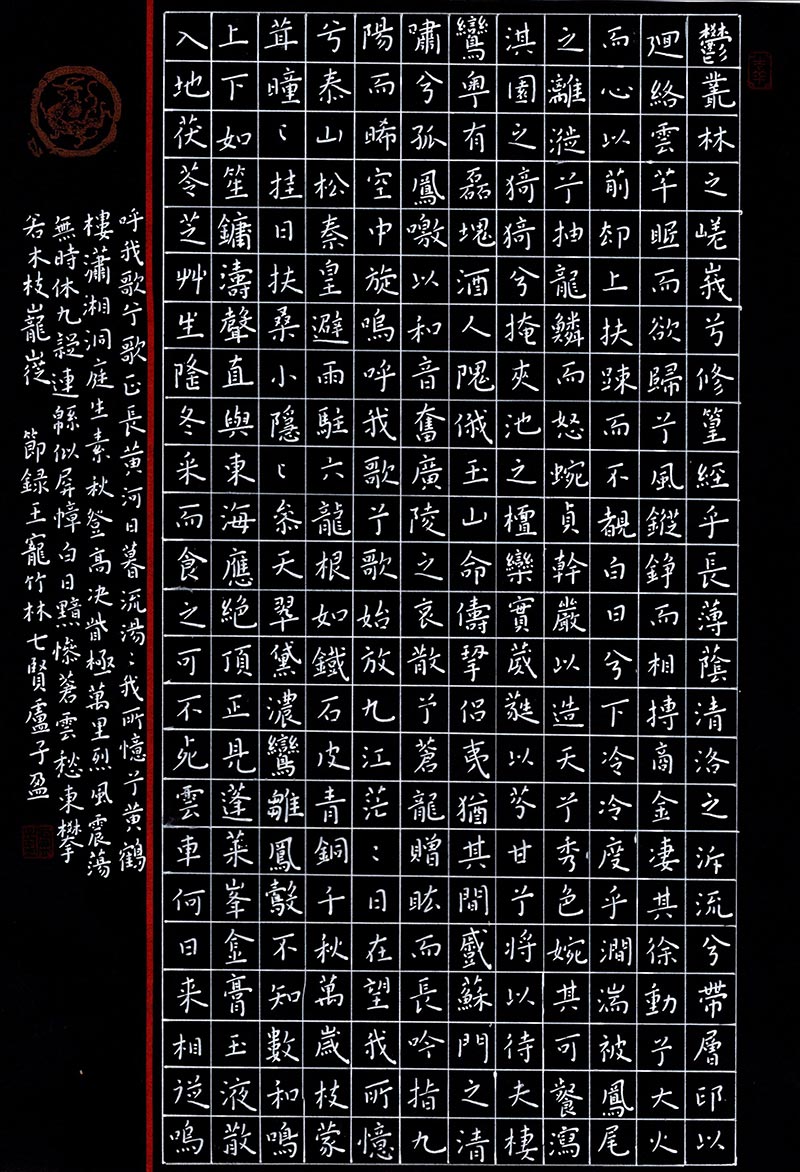 鬱叢林之嵯峩兮修篁經乎長薄蔭清洛之泝流兮帶層邱以
廻絡雲芊眠而欲歸兮風鏦錚而相摶商金凄其徐動兮大火
而心以前却上扶疎而不覩白日兮下冷冷度乎澗湍被鳳尾
之離漇兮抽龍鱗而怒蜿貞幹嚴以造天兮秀色婉其可餐瀉
淇園之猗猗兮掩夾池之檀欒實葳蕤以芬甘兮將以待夫棲
鸞粤有磊塊酒人隗俄玉山命儔挈侶夷猶其間蹙蘇門之清
嘯兮孤鳳噭以和音奮廣陵之哀散兮蒼龍贈眩而長吟指九
陽而晞空中旋嗚呼我歌兮歌始放九江茫〻日在望我所憶
兮泰山松秦皇避雨駐六龍根如鐵石皮青銅千秋萬歲枝蒙
茸曈〻挂日扶桑小隱〻参天翠黛濃鸞雛鳳鷇不知數和鳴
上下如笙鏞濤聲直與東海應絕頂正見蓬萊峯金膏玉液散
入地茯苓芝艸生隆冬采而食之可不死雲車何日来相從嗚
呼我歌兮歌正長黄河日暮流湯〻我所憶兮黄鶴
樓瀟湘洞庭生素秋登高决眥極萬里烈風震蕩
無時休九疑連緜似屏幛白日黯慘蒼雲愁東攀
若木枝巃嵸 節録王寵竹林七賢盧子盈